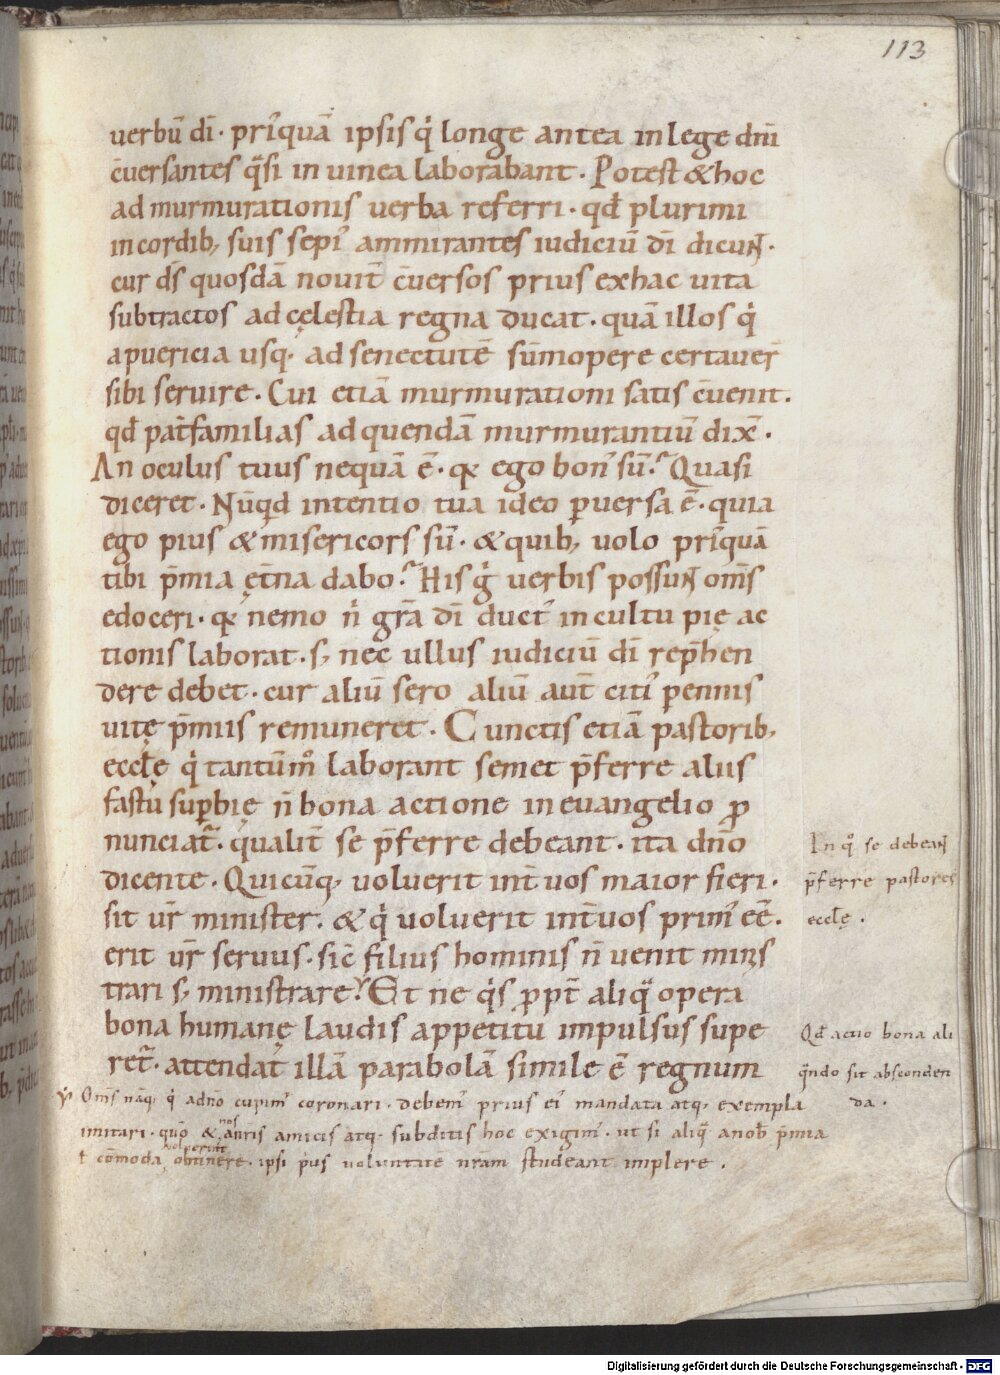 113
uerbū dī· prı̄quā ipsis q̇ longe antea in lege dnī
c̄uersantes q̄si in uinea laborabant. Potest & hoc
ad murmurationis uerba referri· qđ plurimi
in cordib; suis sepı᷒ ammirantes iudiciū dī dicuɴ̄·
cur dr̄ quosdā nouit̄ c̄uersos prius ex hac uita
subtractos ad cęlestia regna ducat· quā illos q̇
a puericia usq; ad senectutē sūmopere certauer̄
sibi seruire. Cui etiā murmurationi satis c̄uenit.
qđ pat̄familias ad quendā murmurantiū dix̄·
An oculus tuus nequā ē· qͣ ego bon᷒ sū? Quasi
diceret· Nūqđ intentio tua ideo ꝑuersa ē· quia
ego pius & misericors sū· & quib; uolo prı̄quā
tibi p̄mia ęt̄na dabo? His ġ uerbis possuɴ̄ om̄s
edoceri· qͣ nemo n̄ grā dī duct᷒ in cultu pię ac
tionis laborat· s; nec ullus iudiciū dī rep̄hen
dere debet· cur aliū sero aliū aut̄ citı᷒ pennis
uitę p̄miis remuneret. Cunctis etiā pastorib;
eccłę q̇ tantūm̊ laborant semet p̄ferre aliis
fastu suꝑbię n̄ bona actione in euangelio ꝓ
nunciat᷒· qualit̄ se p̄ferre debeant· ita dn̄o
dicente· Quicūq; uoluerit int̄ uos maior fieri·
sit ur̄ minister· & q̇ uoluerit int̄ uos prim᷒ eē·
erit ur̄ seruus· sic̄ filius hominis n̄ uenit minis
trari s; ministrare. Et ne q̇s ꝓpt̄ aliq̄ opera
bona humanę laudis appetitu impulsus supe
ret᷒· attendat illā parabolā simile ē regnum
In q̊ se debeaɴ̄
p̄ferre pastores
eccłę.
Qđ actio bona ali
q̄ndo sit absconden
da·
Om̄s nāq; q̇ a dn̄o cupim᷒ coronari· debem᷒ prius ei᷒ mandata atq; exempla
imitari· quō & nos a nr̄is amicis atq; subditis hoc exigim᷒· ut si aliq̄ a nob̄ p̄mia
ł cōmoda uoluerint obtinere· ipsi p̄us uoluntatē nr̄am studeant implere·
Digitalisierung gefördert durch die Deutsche Forschungsgemeinschaft - DFG